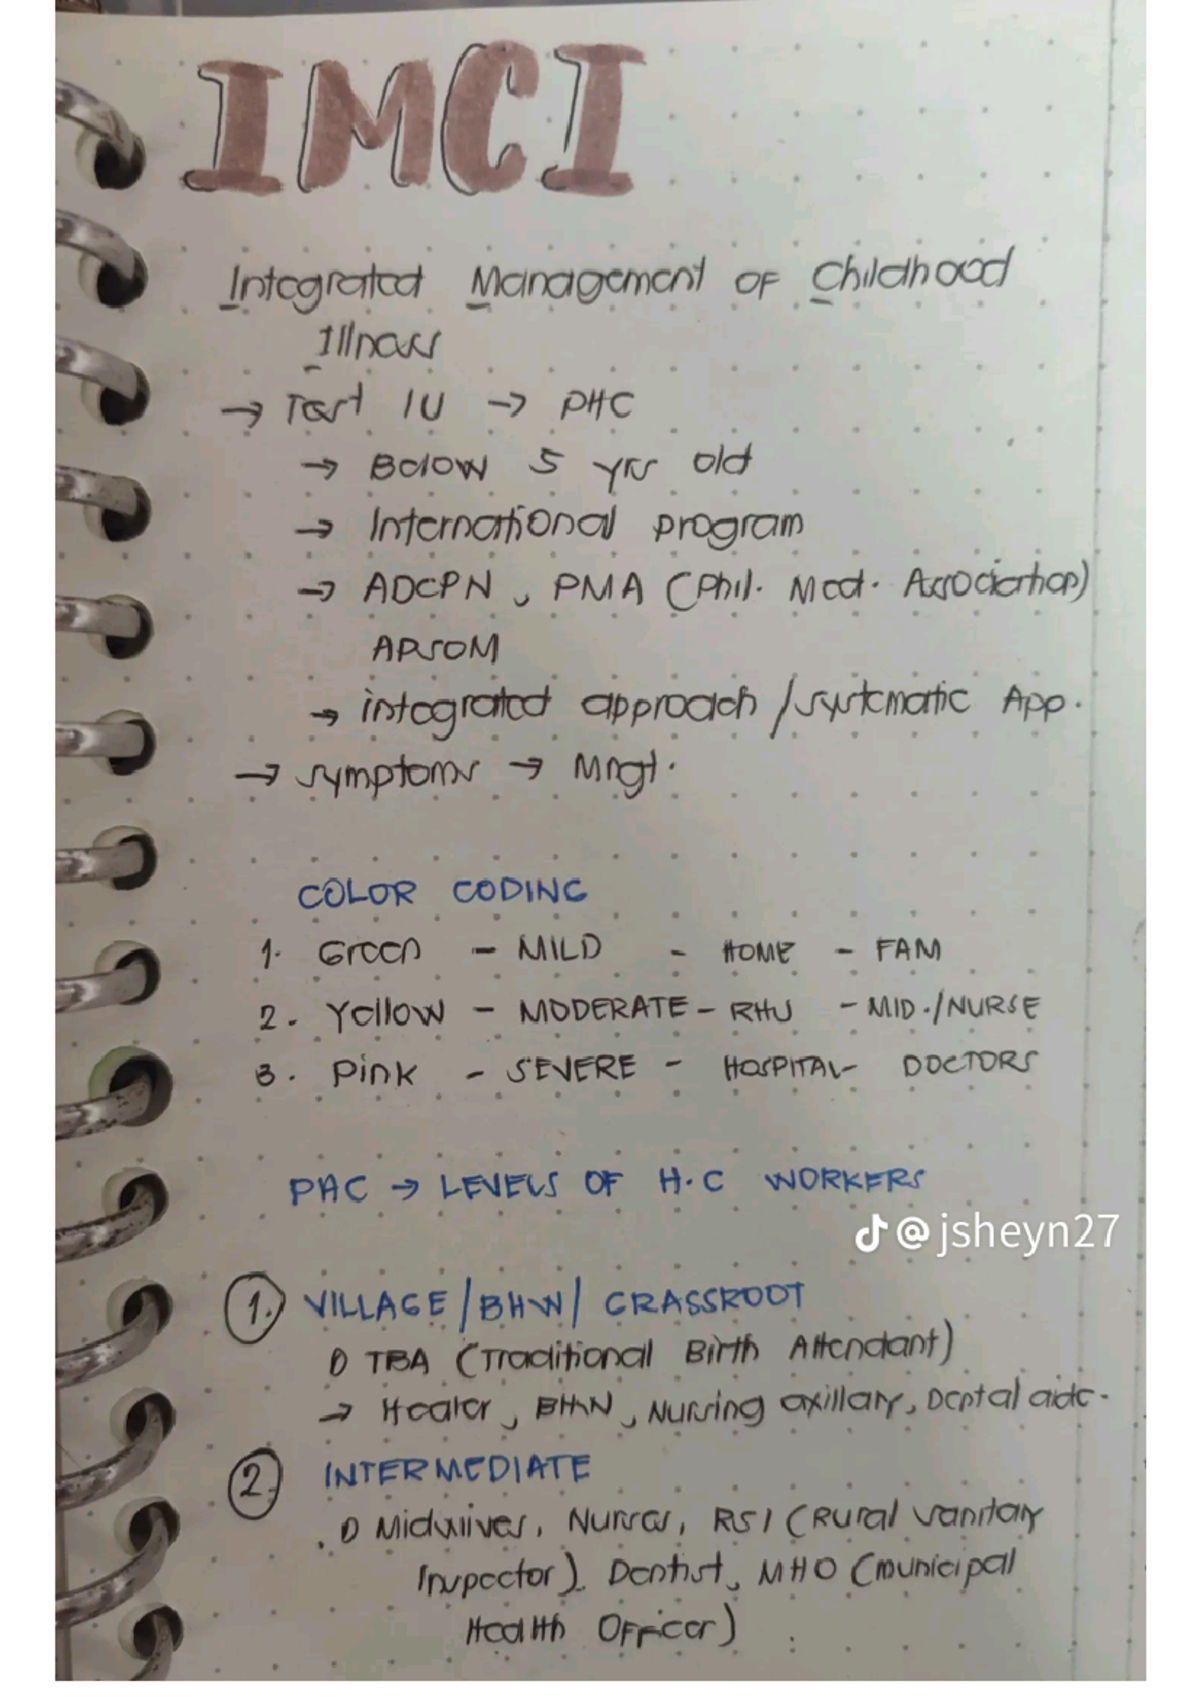 IMCI
Integrated Management OF Childhood
Illness
→ Test IV → PHC
→ Below 5 yrs old
→ International program
→ ADCPN, PMA (Phil. Med. Association)
APSOM
→ integrated approach / systematic App.
→ symptoms → Mngt.
COLOR CODING
1. Green - MILD - HOME - FAM
2. Yellow - MODERATE - RHU - MID./NURSE
3. Pink - SEVERE - HOSPITAL - DOCTORS
PHC → LEVELS OF H.C WORKERS
@jsheyn27
1. VILLAGE / BHW / GRASSROOT
TBA (Traditional Birth Attendant)
→ Healer, BHW, Nursing axillary, Dental aide.
2. INTERMEDIATE
Midwives, Nurses, RSI (Rural sanitary
Inspector), Dentist, MHO (municipal
Health Officer)